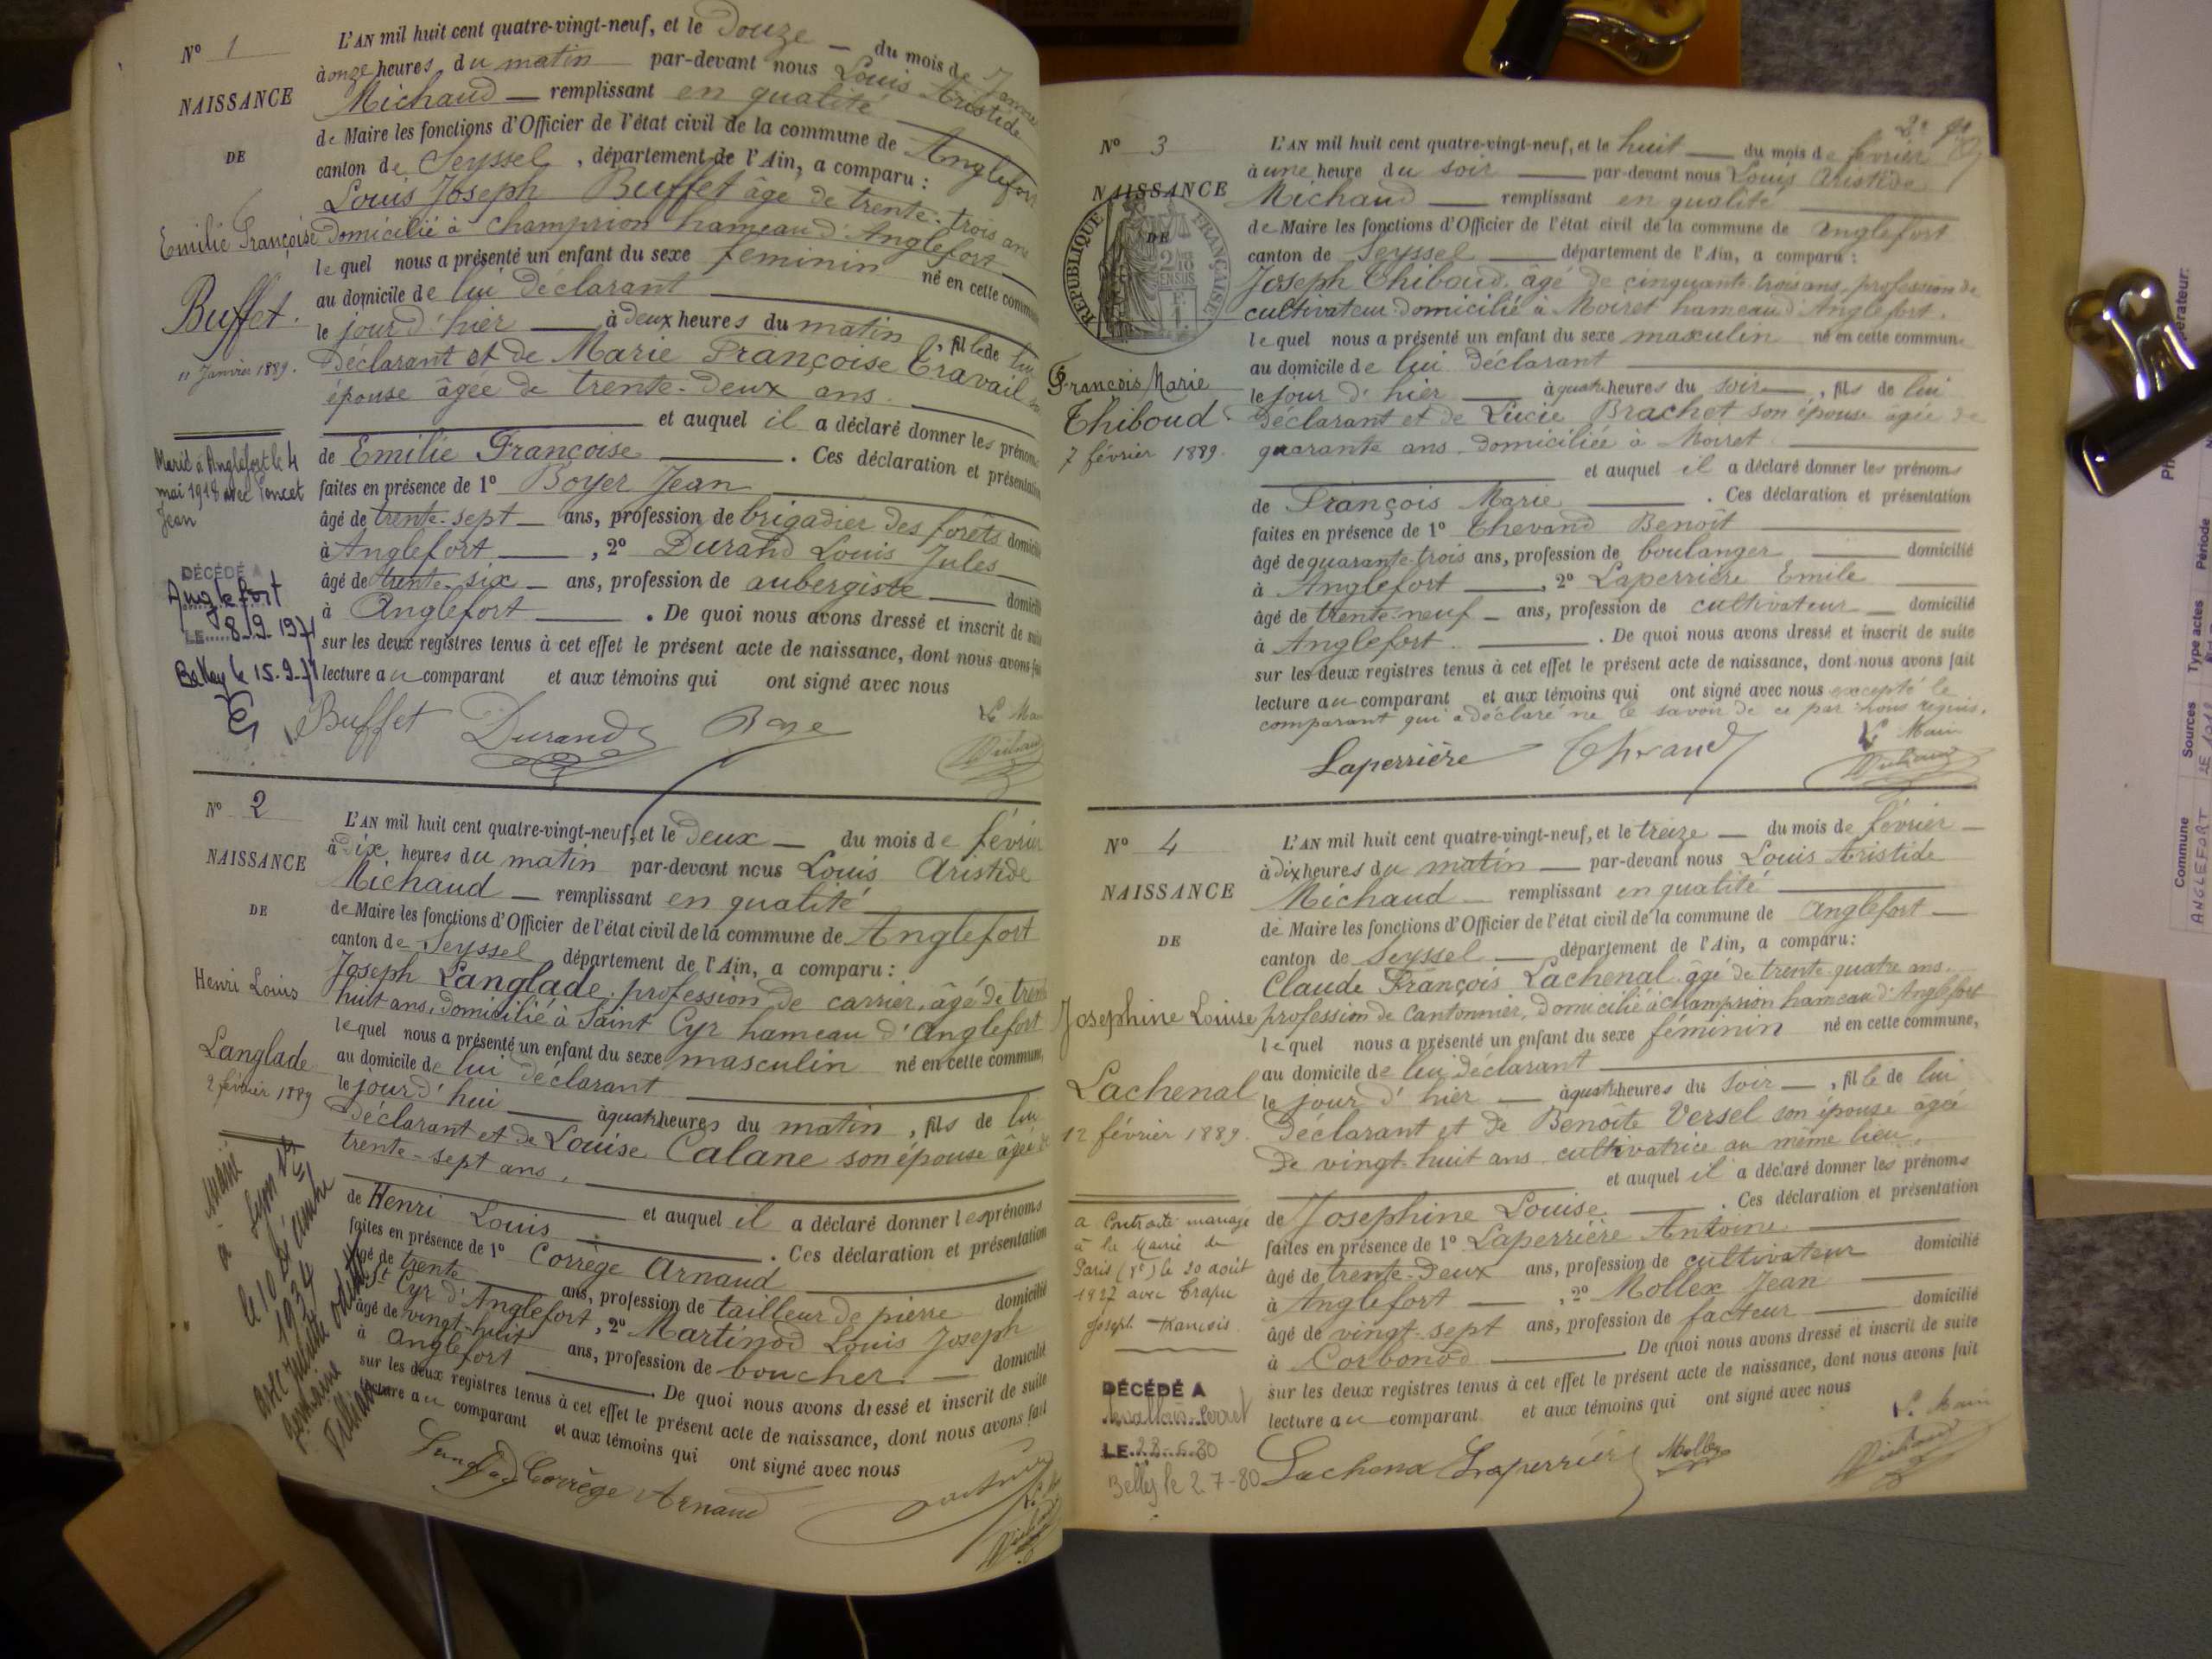 N° 1
NAISSANCE
DE
Emilie Françoise
Buffet.
11 Janvier 1889.
Marié à Anglefort le 4
mai 1918 avec Poncet
Jean
DÉCÉDÉ A
Anglefort
LE 8.9.1971
Belley le 15.9.71
L'AN mil huit cent quatre-vingt-neuf, et le douze — du mois de Janvier
à onze heures du matin par-devant nous Louis Aristide
Michaud — remplissant en qualité
de Maire les fonctions d'Officier de l'état civil de la commune de Anglefort
canton de Seyssel, département de l'Ain, a comparu :
Louis Joseph Buffet âgé de trente-trois ans
domicilié à Champrion hameau d'Anglefort
lequel nous a présenté un enfant du sexe féminin né en cette commune
au domicile de lui déclarant
le jour d'hier — à deux heures du matin, fille de lui
déclarant et de Marie Françoise Travail son
épouse âgée de trente-deux ans.
et auquel il a déclaré donner les prénoms
de Emilie Françoise. Ces déclaration et présentation
faites en présence de 1° Boyer Jean
âgé de trente-sept — ans, profession de brigadier des forêts domicilié
à Anglefort —, 2° Durand Louis Jules
âgé de trente-six — ans, profession de aubergiste — domicilié
à Anglefort —. De quoi nous avons dressé et inscrit de suite
sur les deux registres tenus à cet effet le présent acte de naissance, dont nous avons fait
lecture au comparant et aux témoins qui ont signé avec nous
Buffet Durand Le Maire
Michaud
N° 2
NAISSANCE
DE
Henri Louis
Langlade
2 février 1889
Marié
à Lyon
le 10
1934
avec
Germaine
L'AN mil huit cent quatre-vingt-neuf, et le deux — du mois de février
à dix heures du matin par-devant nous Louis Aristide
Michaud — remplissant en qualité
de Maire les fonctions d'Officier de l'état civil de la commune de Anglefort
canton de Seyssel département de l'Ain, a comparu :
Joseph Langlade, profession de carrier, âgé de trente
huit ans, domicilié à Saint Cyr hameau d'Anglefort
lequel nous a présenté un enfant du sexe masculin né en cette commune,
au domicile de lui déclarant
le jour d'hui — à quatre heures du matin, fils de lui
déclarant et de Louise Calane son épouse âgée de
trente-sept ans,
et auquel il a déclaré donner les prénoms
de Henri Louis. Ces déclaration et présentation
faites en présence de 1° Corrège Arnaud
âgé de trente — ans, profession de tailleur de pierre domicilié
à St Cyr d'Anglefort, 2° Martinod Louis Joseph
âgé de vingt-huit ans, profession de boucher — domicilié
à Anglefort. De quoi nous avons dressé et inscrit de suite
sur les deux registres tenus à cet effet le présent acte de naissance, dont nous avons fait
lecture au comparant et aux témoins qui ont signé avec nous
Corrège Arnaud
N° 3
NAISSANCE
DE
RÉPUBLIQUE FRANÇAISE
François Marie
Thiboud
7 février 1889.
L'AN mil huit cent quatre-vingt-neuf, et le huit — du mois de février
à une heure du soir — par-devant nous Louis Aristide
Michaud — remplissant en qualité
de Maire les fonctions d'Officier de l'état civil de la commune de Anglefort
canton de Seyssel — département de l'Ain, a comparu :
Joseph Thiboud, âgé de cinquante trois ans, profession de
cultivateur domicilié à Moiret hameau d'Anglefort.
lequel nous a présenté un enfant du sexe masculin né en cette commune
au domicile de lui déclarant
le jour d'hier — à quatre heures du soir —, fils de lui
déclarant et de Lucie Brachet son épouse âgée de
quarante ans, domiciliée à Moiret.
et auquel il a déclaré donner les prénoms
de François Marie. Ces déclaration et présentation
faites en présence de 1° Thevand Benoît
âgé de quarante-trois ans, profession de boulanger — domicilié
à Anglefort —, 2° Laperrière Emile
âgé de trente-neuf — ans, profession de cultivateur — domicilié
à Anglefort. De quoi nous avons dressé et inscrit de suite
sur les deux registres tenus à cet effet le présent acte de naissance, dont nous avons fait
lecture au comparant et aux témoins qui ont signé avec nous excepté le
comparant qui a déclaré ne le savoir de ce par nous requis.
Laperrière Le Maire
Michaud
N° 4
NAISSANCE
DE
Josephine Louise
Lachenal
12 février 1889.
a Contracté mariage
à la Mairie de
Paris le 20 août
1927 avec Trapu
Joseph François
DÉCÉDÉ A
Levallois-Perret
LE 22-6-80
Belley le 2-7-80
L'AN mil huit cent quatre-vingt-neuf, et le treize — du mois de février —
à dix heures du matin — par-devant nous Louis Aristide
Michaud — remplissant en qualité
de Maire les fonctions d'Officier de l'état civil de la commune de Anglefort —
canton de Seyssel — département de l'Ain, a comparu :
Claude François Lachenal âgé de trente-quatre ans,
profession de Cantonnier, domicilié à Champrion hameau d'Anglefort
lequel nous a présenté un enfant du sexe féminin né en cette commune,
au domicile de lui déclarant
le jour d'hier — à quatre heures du soir —, fille de lui
déclarant et de Benoîte Versel son épouse âgée
de vingt-huit ans, cultivatrice au même lieu.
et auquel il a déclaré donner les prénoms
de Josephine Louise —. Ces déclaration et présentation
faites en présence de 1° Laperrière Antoine
âgé de trente-deux ans, profession de cultivateur domicilié
à Anglefort —, 2° Mollex Jean
âgé de vingt-sept ans, profession de facteur — domicilié
à Corbonod. De quoi nous avons dressé et inscrit de suite
sur les deux registres tenus à cet effet le présent acte de naissance, dont nous avons fait
lecture au comparant et aux témoins qui ont signé avec nous
Lachenal Laperrière Mollex Le Maire
Michaud
Commune Sources Type actes Période
ANGLEFORT